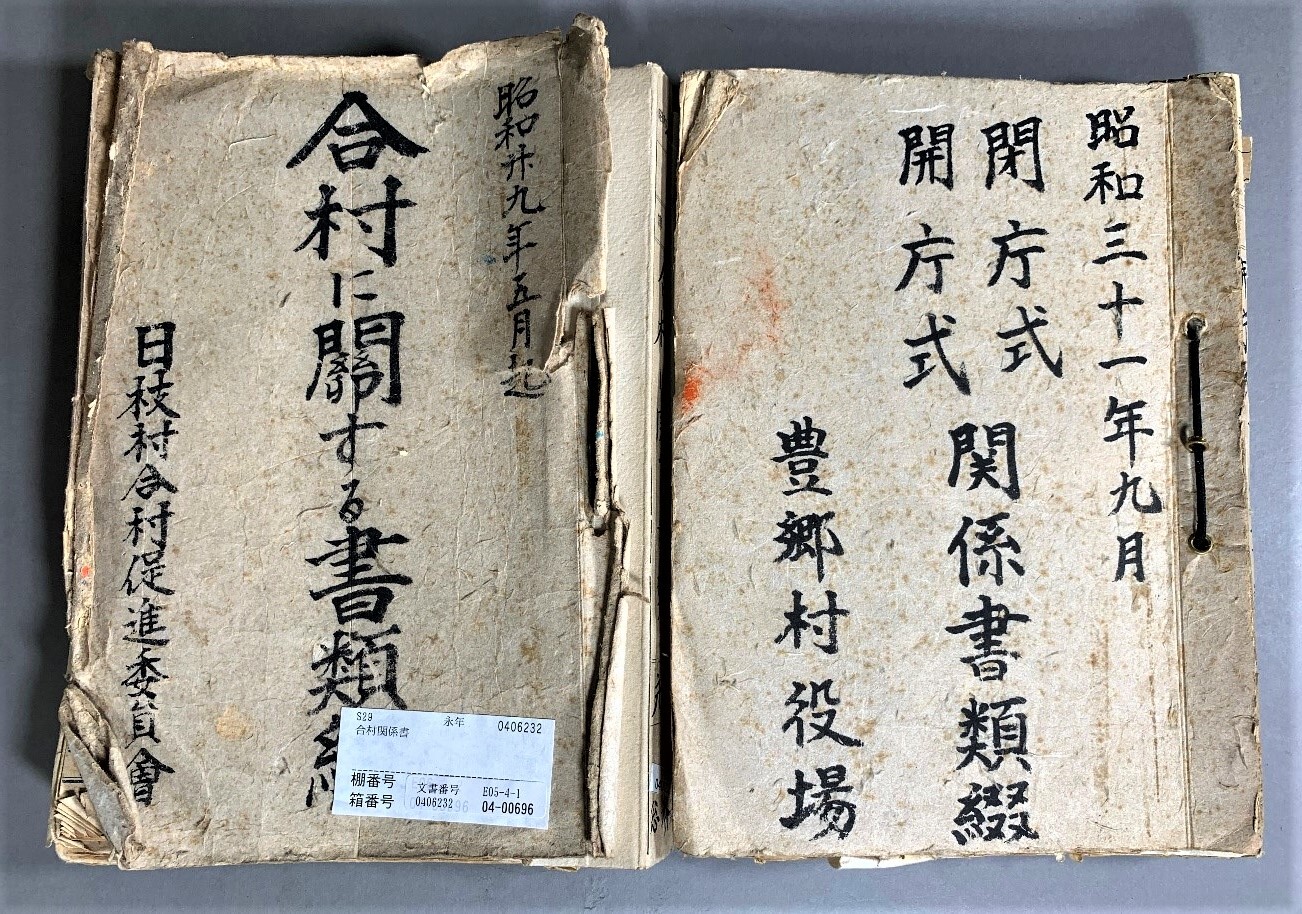 昭和三十一年九月
閉庁式
開庁式
関係書類綴
豊郷村役場
昭和卅九年五月起
合村に關する書類
日枝村合村促進委員會
S29 永年 0406232
合村関係書
棚番号 文書番号 E05-4-1
箱番号 0406232 04-00696